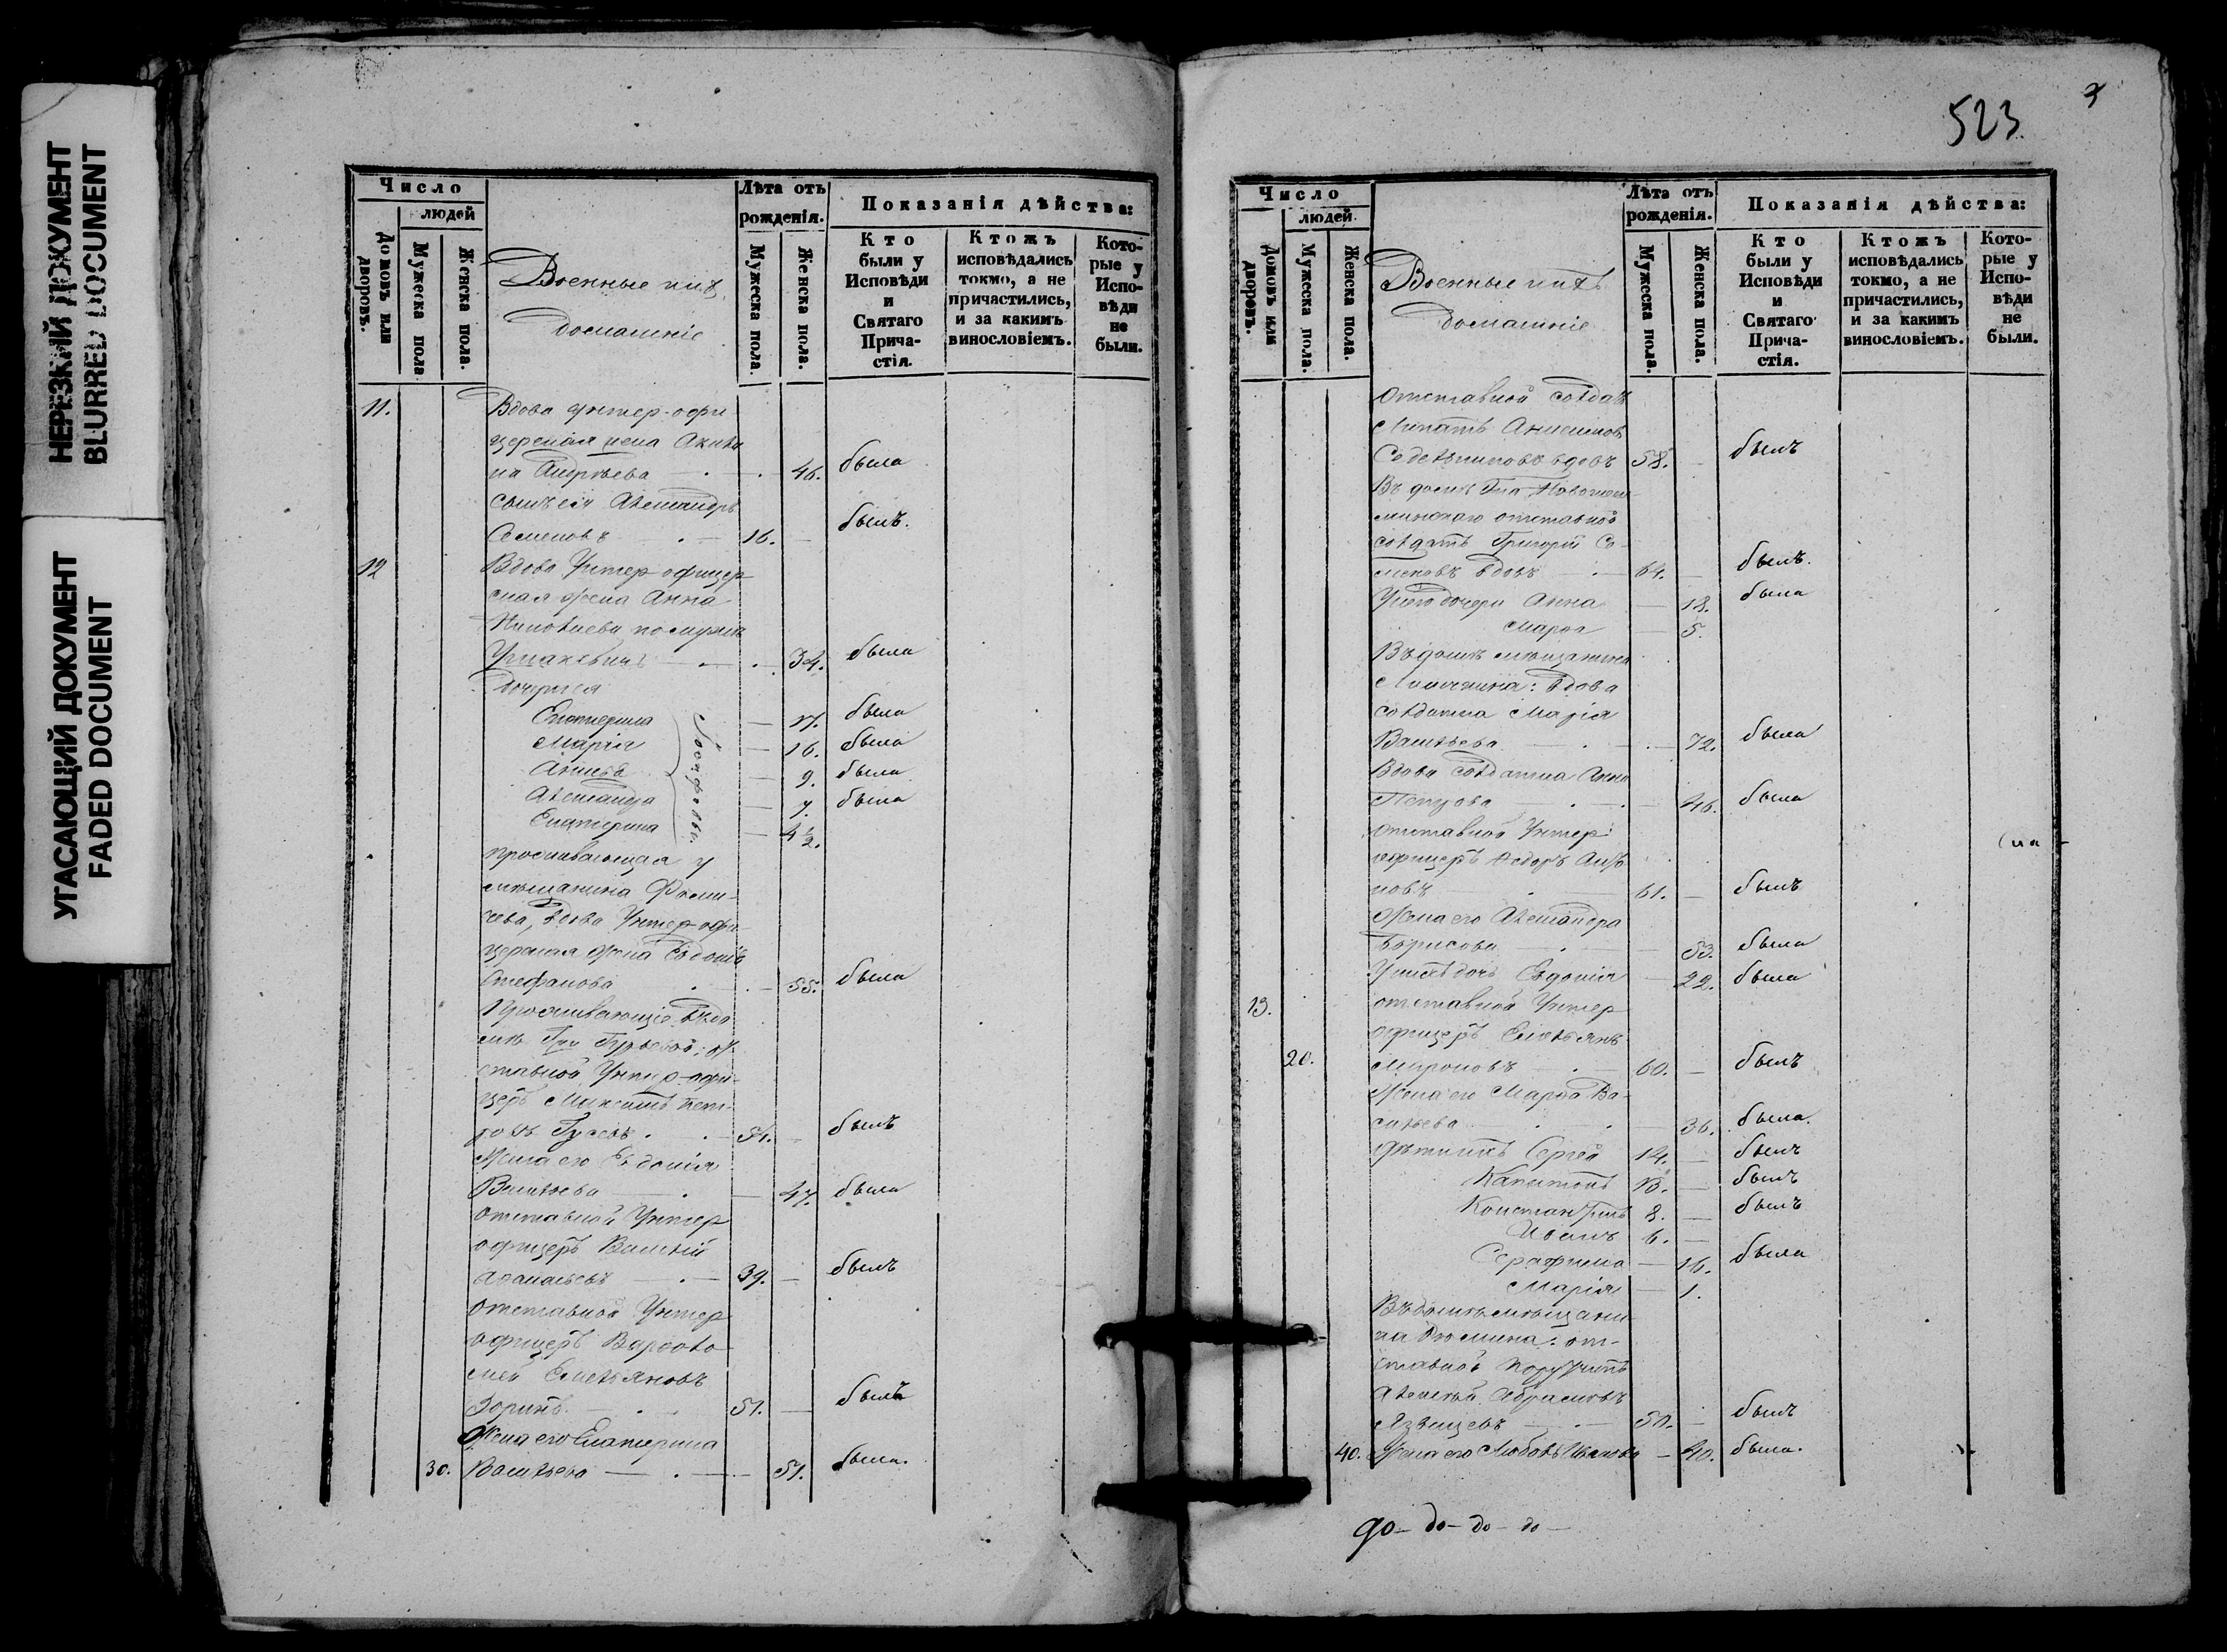 НЕРЕЗКИЙ ДОКУМЕНТ
BLURRED DOCUMENT
УГАСАЮЩИЙ ДОКУМЕНТ
FADED DOCUMENT
Число
людей
Домовъ или дворовъ.
Мужеска пола
Женска пола.
Военные и ихъ
домашніе
Лѣта отъ рожденія.
Мужеска пола.
Женска пола.
Показанія дѣйства:
Кто были у Исповѣди и Святаго Причастія.
Ктожъ исповѣдались токмо, а не причастились, и за какимъ винословіемъ.
Которые у Исповѣди не были.
11. Вдова унтер-офи
церская жена Акили
на Андреева 46. была
сынъ ея Александръ
Семеновъ 16. былъ.
12 Вдова Унтер офицер
ская жена Анна
по мужу
34. была
дочери ея
Екатерина 17. была
Марія 16. была
Анисья 9. была
Александра 7. была
Екатерина 4 1/2.
Іосифовы.
проживающая у
мѣщанина Фоми-
чева, вдова Унтер-офи-
церская жена Евдокія
Стефанова 55. была
Проживающіе въ до
мѣ Гжи Гурьевой; от
ставной Унтер-офи-
церъ Максимъ Пет-
ровъ Гусевъ 51. былъ
Жена его Евдокія
Васильева 47. была
отставной Унтер
офицеръ Василій
Афанасьевъ 39. былъ
отставной Унтер
офицеръ Варфоло
мей Емельяновъ
Зоринъ 51. былъ
Жена его Екатерина
30. Васильева 51. была.
523
3
Число
людей.
Домовъ или дворовъ.
Мужеска пола.
Женска пола.
Военные и ихъ
домашніе
Лѣта отъ рожденія.
Мужеска пола.
Женска пола.
Показанія дѣйства:
Кто были у Исповѣди и Святаго Причастія.
Ктожъ исповѣдались токмо, а не причастились, и за какимъ винословіемъ.
Которые у Исповѣди не были.
отставной солдатъ
Анисимовъ
вдовъ 58. былъ
Въ домѣ Гна
отставной
солдатъ Григорій Се
меновъ вдовъ 64. былъ.
У него дочери Анна 18. была
Марѳа 5.
Въ домѣ мѣщанина
вдова
солдатка Марія
Васильева 72. была
Вдова солдатка Анна
Петрова 46. была
отставной Унтер
офицеръ Ѳедоръ
новъ 61. былъ
Жена его Александра
Борисова 53. была
У нихъ дочь Евдокія 22. была
13. отставной Унтер
офицеръ Емельянъ
20. Мироновъ 60. былъ
Жена его Марѳа Ва-
сильева 36. была.
Дѣти ихъ Сергей 14. былъ
Капитонъ 13. былъ
Константинъ 8. былъ
Иванъ 6.
Серафима 16. была
Марія 1.
Въ домѣ мѣщани
на Фомина: от-
ставной Поручикъ
Алексѣй Абрамовъ
Язвицевъ 50. былъ
40. Жена его Любовь Иванова 40. была.
до- до- до- до-